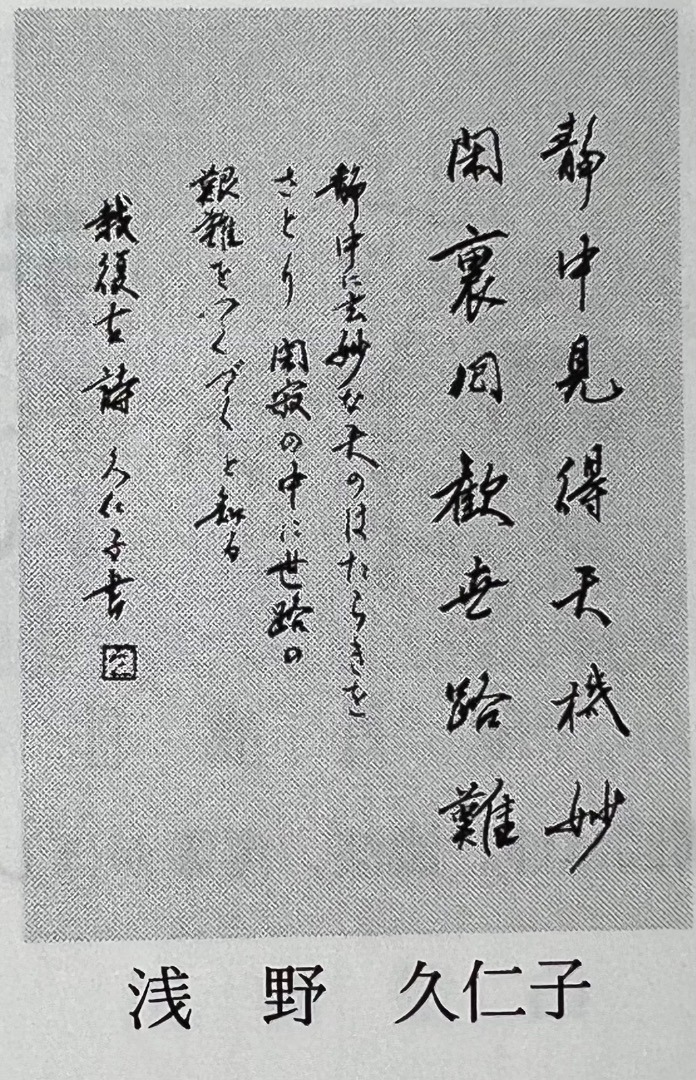 静中見得天機妙
閑裏回観世路難
静中に玄妙な天のはたらきを
さとり 閑寂の中に世路の
艱難をつくづくと知る
戴復古詩 久仁子書
浅野 久仁子